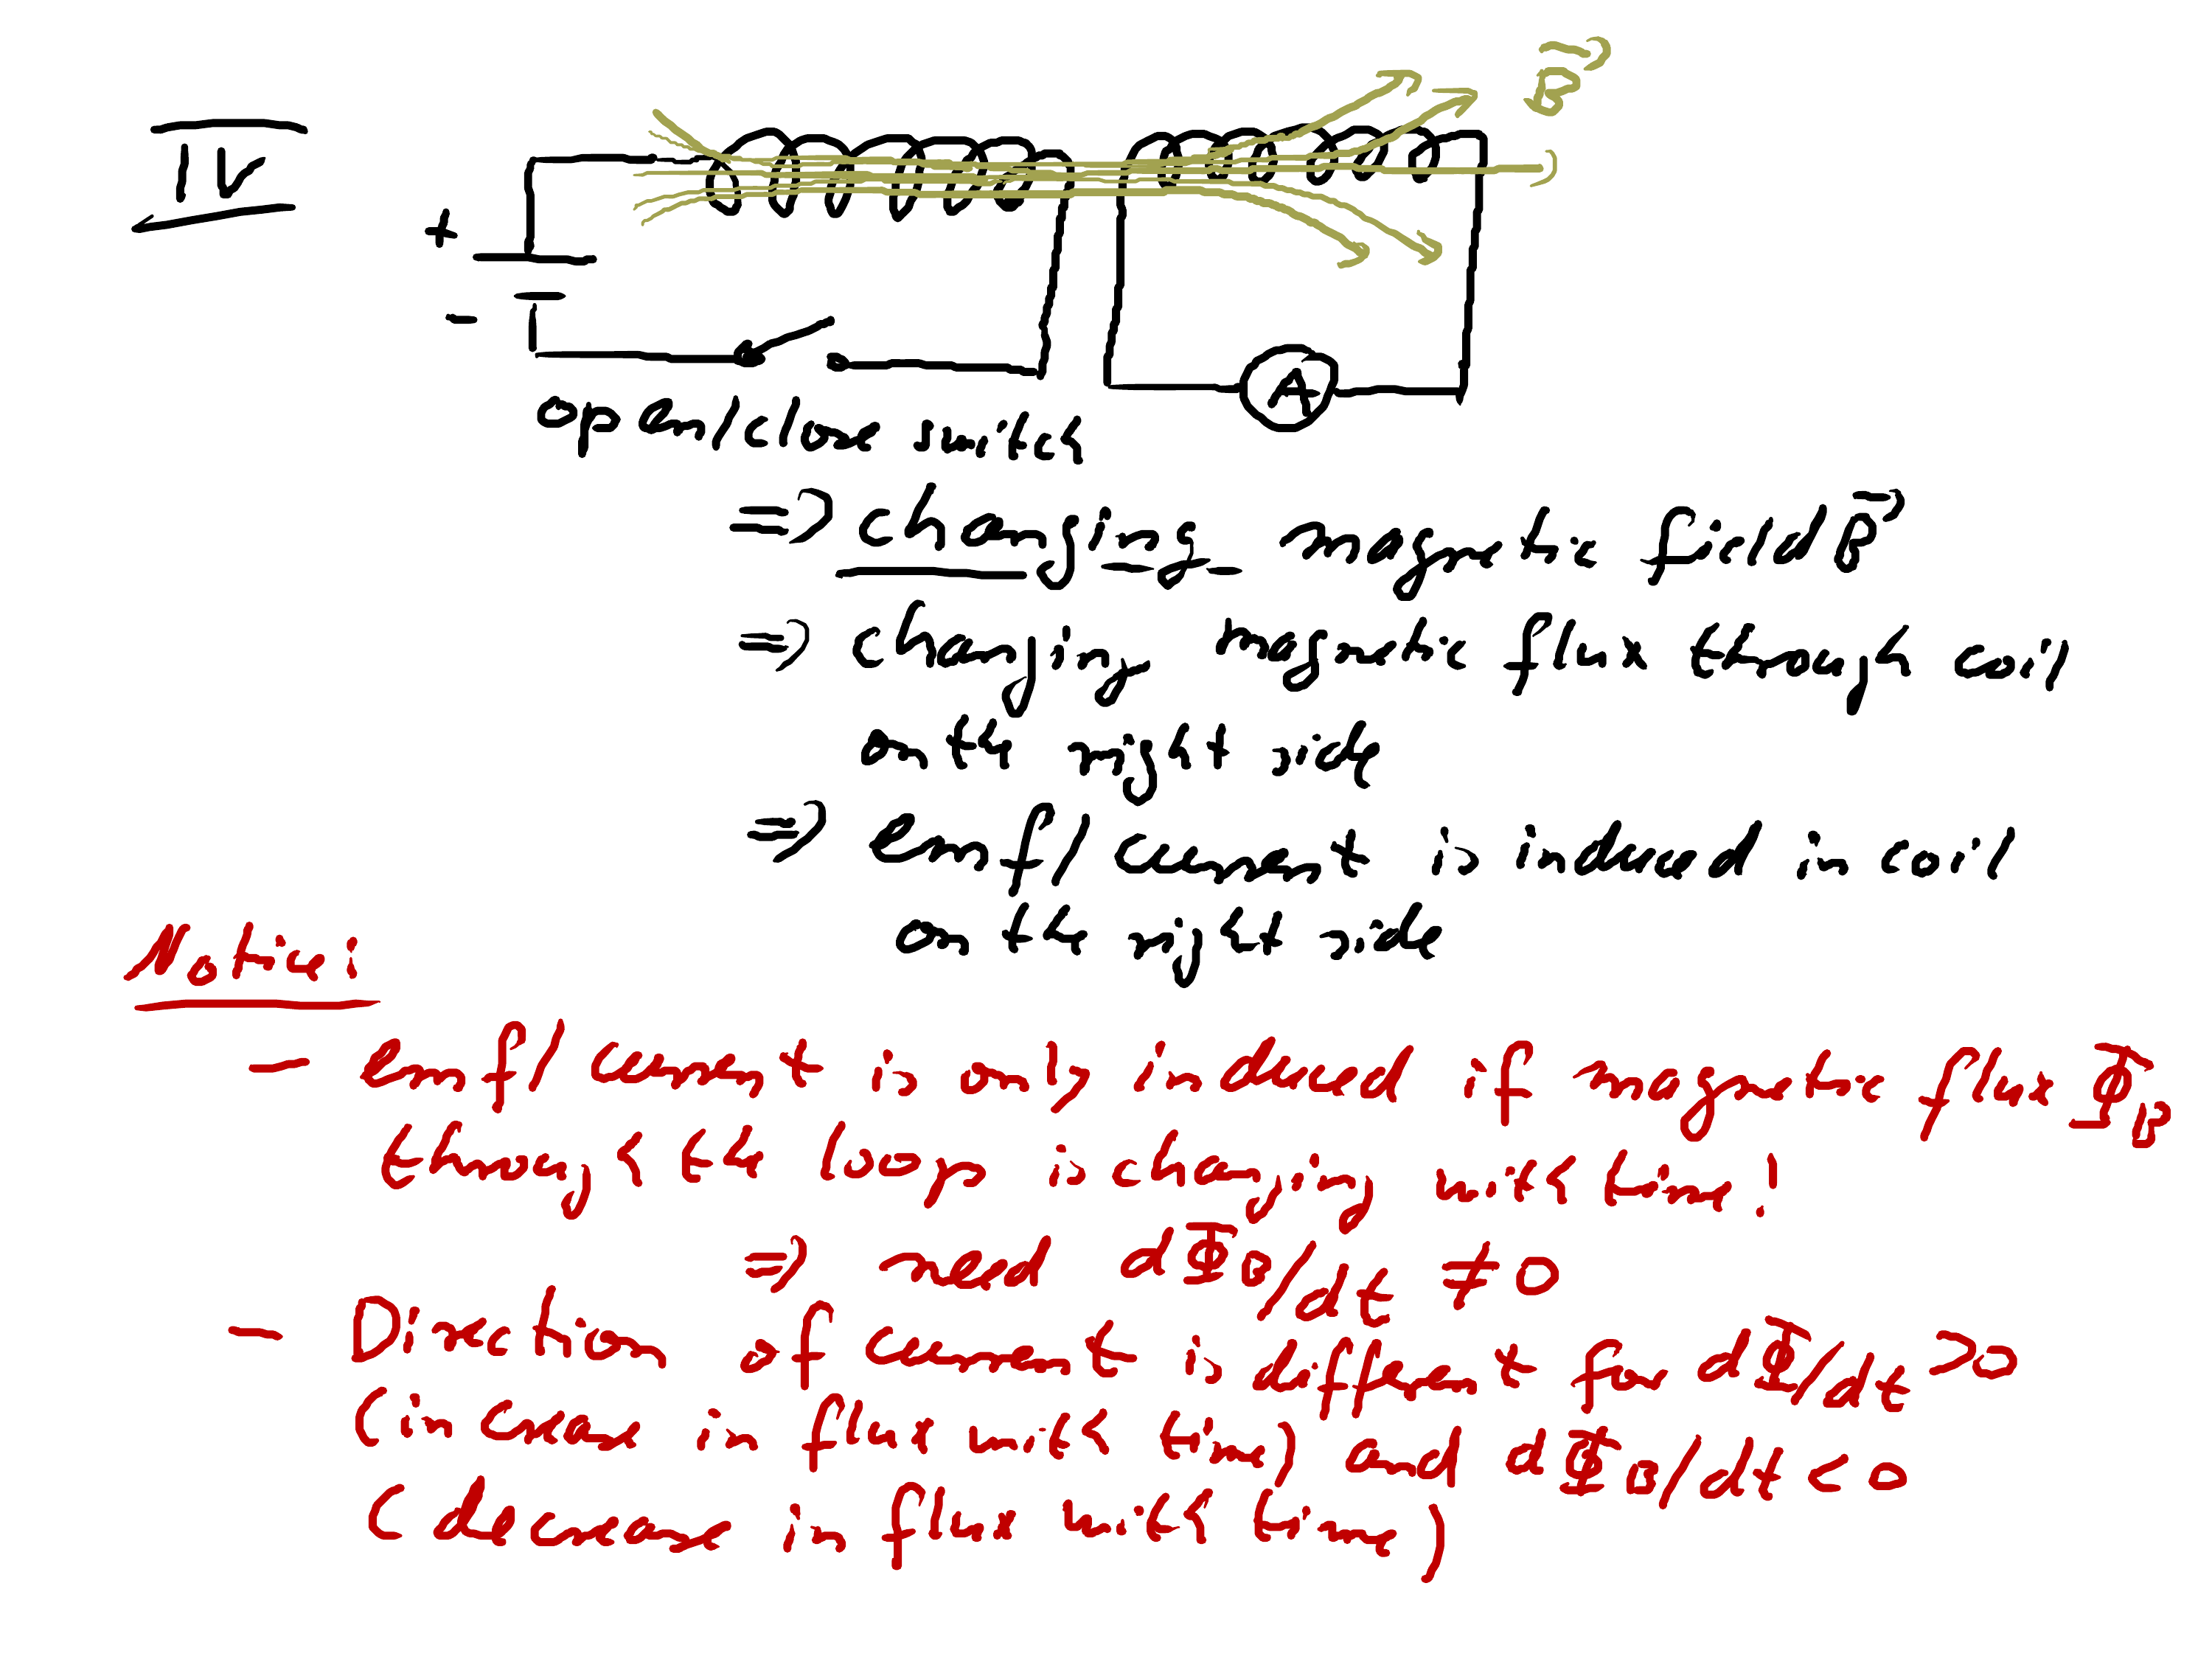 IV
B⃗
+
-
A
open/close switch
=> changing magnetic field B⃗
=> changing magnetic flux through coil
on the right side
=> emf/current is induced in coil
on the right side
Notice:
- emf/current is only induced if magnetic flux Φ_B
through the loop is changing with time!
=> need dΦ_B/dt ≠ 0
- Direction of current is different for dΦ/dt >0
(increase in flux with time) and dΦ_B/dt <0
(decrease in flux with time)